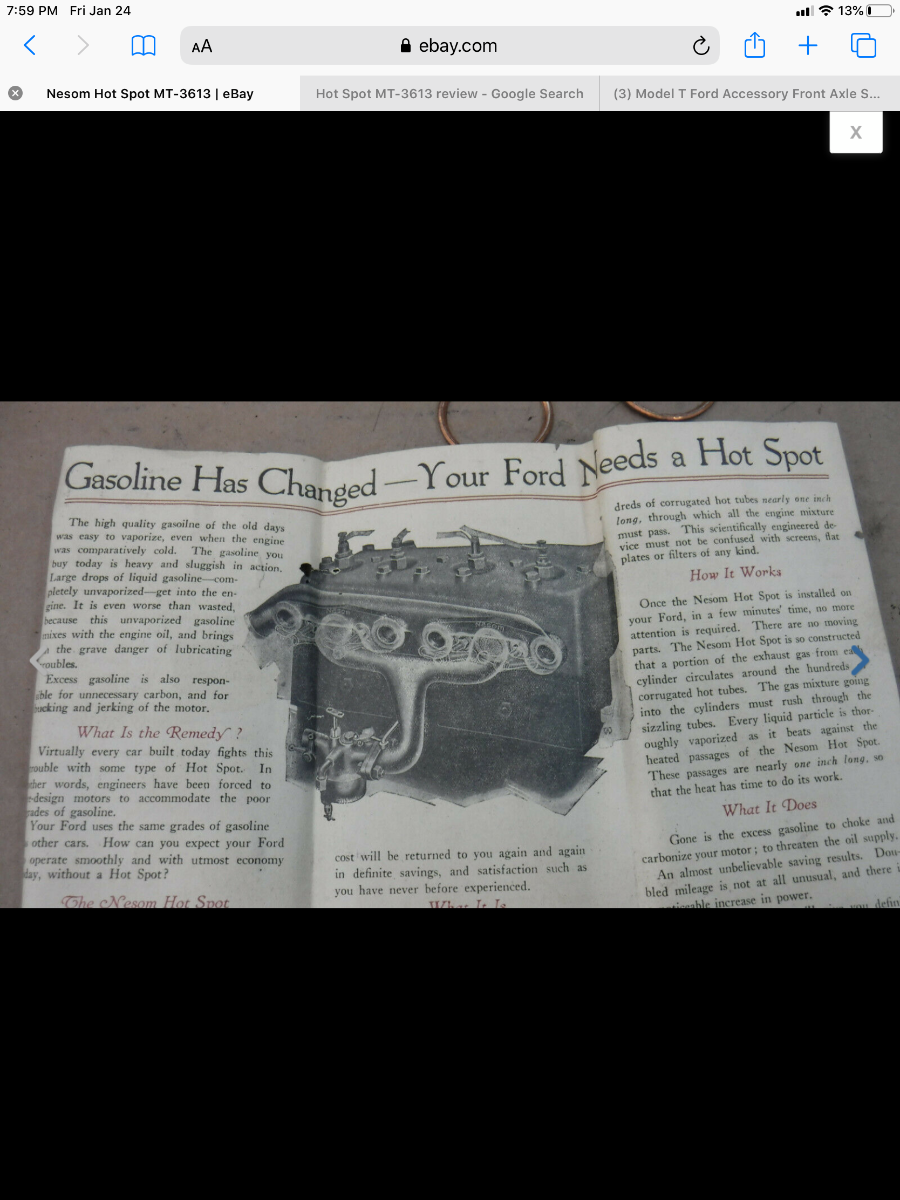 7:59 PM Fri Jan 24
13%
AA
ebay.com
Nesom Hot Spot MT-3613 | eBay
Hot Spot MT-3613 review - Google Search
(3) Model T Ford Accessory Front Axle S...
X
Gasoline Has Changed—Your Ford Needs a Hot Spot
The high quality gasoilne of the old days
was easy to vaporize, even when the engine
was comparatively cold. The gasoline you
buy today is heavy and sluggish in action.
Large drops of liquid gasoline—com-
pletely unvaporized—get into the en-
gine. It is even worse than wasted,
because this unvaporized gasoline
mixes with the engine oil, and brings
the grave danger of lubricating
roubles.
Excess gasoline is also respon-
ible for unnecessary carbon, and for
bucking and jerking of the motor.
What Is the Remedy?
Virtually every car built today fights this
rouble with some type of Hot Spot. In
ther words, engineers have been forced to
e-design motors to accommodate the poor
rades of gasoline.
Your Ford uses the same grades of gasoline
other cars. How can you expect your Ford
operate smoothly and with utmost economy
day, without a Hot Spot?
The Nesom Hot Spot
cost will be returned to you again and again
in definite savings, and satisfaction such as
you have never before experienced.
What It Is
dreds of corrugated hot tubes nearly one inch
long, through which all the engine mixture
must pass. This scientifically engineered de-
vice must not be confused with screens, flat
plates or filters of any kind.
How It Works
Once the Nesom Hot Spot is installed on
your Ford, in a few minutes' time, no more
attention is required. There are no moving
parts. The Nesom Hot Spot is so constructed
that a portion of the exhaust gas from each
cylinder circulates around the hundreds
corrugated hot tubes. The gas mixture going
into the cylinders must rush through the
sizzling tubes. Every liquid particle is thor-
oughly vaporized as it beats against the
heated passages of the Nesom Hot Spot.
These passages are nearly one inch long, so
that the heat has time to do its work.
What It Does
Gone is the excess gasoline to choke and
carbonize your motor; to threaten the oil supply.
An almost unbelievable saving results. Dou-
bled mileage is not at all unusual, and there i
noticeable increase in power.
you defin